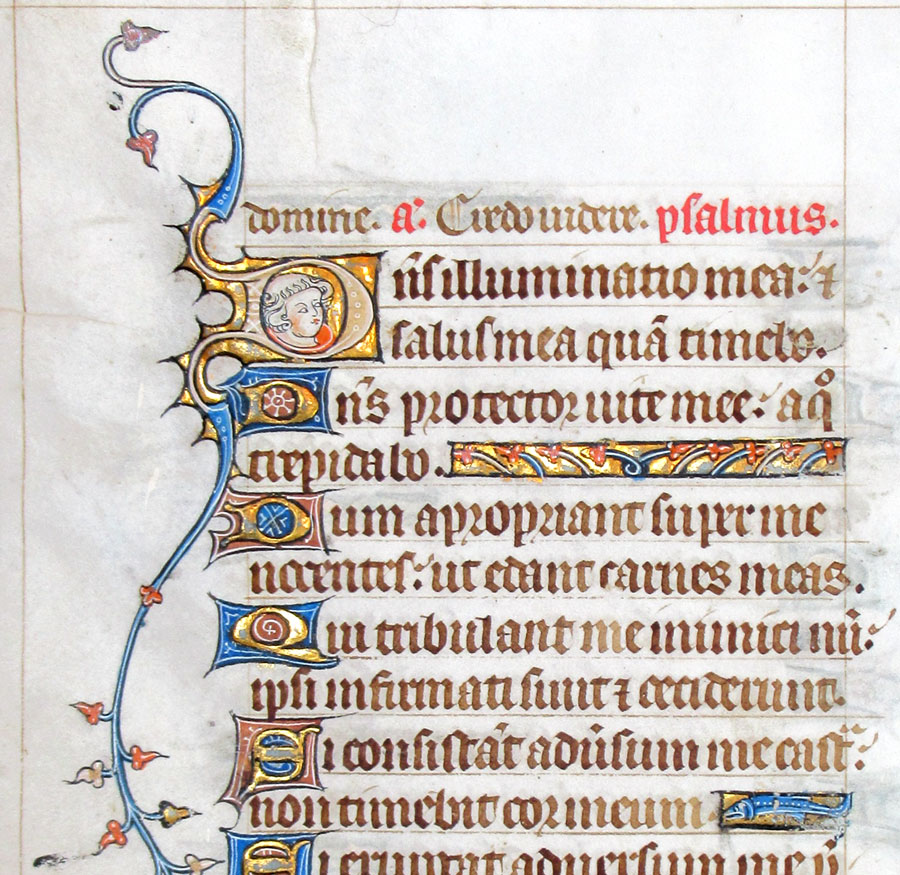 domine. a. Credo uidere. psalmus.
Dn̄s illuminatio mea: ⁊
salus mea quā timebo.
Dn̄s protector uite mee: a q̊
trepidabo.
Dum apropriant super me
nocentes: ut edant carnes meas.
Qui tribulant me inimici mī:
ipsi infirmati sunt ⁊ ceciderunt.
Si consistāt adūsum me castᵃ:
non timebit cor meum.
Si aduersum me